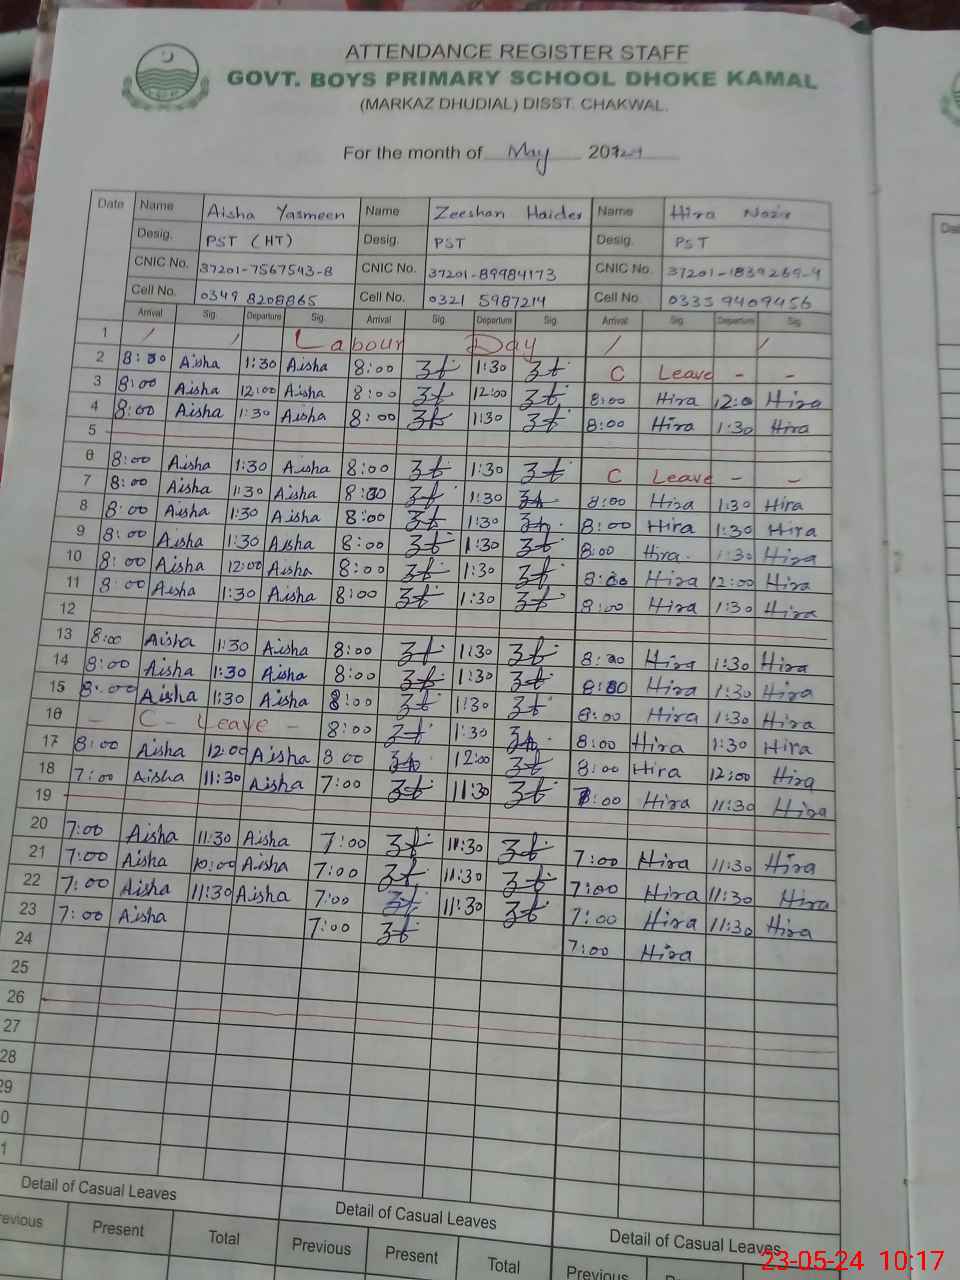 ATTENDANCE REGISTER STAFF
GOVT. BOYS PRIMARY SCHOOL DHOKE KAMAL
(MARKAZ DHUDIAL) DISST. CHAKWAL.
For the month of May 2024
Date Name Aisha Yasmeen Name Zeeshan Haider Name Hira Nazir
Desig. PST (HT) Desig. PST Desig. PST
CNIC No. 37201-7567543-8 CNIC No. 37201-89984173 CNIC No. 37201-1839269-4
Cell No. 0349 8208865 Cell No. 0321 5987214 Cell No. 0335 9409456
Arrival Sig. Departure Sig. Arrival Sig. Departure Sig. Arrival Sig. Departure Sig.
1 / / Labour Day / /
2 8:00 Aisha 1:30 Aisha 8:00 1:30 C Leave - -
3 8:00 Aisha 12:00 Aisha 8:00 12:00 8:00 Hira 12:00 Hira
4 8:00 Aisha 1:30 Aisha 8:00 1:30 8:00 Hira 1:30 Hira
5
6 8:00 Aisha 1:30 Aisha 8:00 1:30 C Leave - -
7 8:00 Aisha 1:30 Aisha 8:00 1:30 8:00 Hira 1:30 Hira
8 8:00 Aisha 1:30 Aisha 8:00 1:30 8:00 Hira 1:30 Hira
9 8:00 Aisha 1:30 Aisha 8:00 1:30 8:00 Hira 1:30 Hira
10 8:00 Aisha 12:00 Aisha 8:00 1:30 8:00 Hira 12:00 Hira
11 8:00 Aisha 1:30 Aisha 8:00 1:30 8:00 Hira 1:30 Hira
12
13 8:00 Aisha 1:30 Aisha 8:00 1:30 8:00 Hira 1:30 Hira
14 8:00 Aisha 1:30 Aisha 8:00 1:30 8:00 Hira 1:30 Hira
15 8:00 Aisha 1:30 Aisha 8:00 1:30 8:00 Hira 1:30 Hira
16 - C - Leave - 8:00 1:30 8:00 Hira 1:30 Hira
17 8:00 Aisha 12:00 Aisha 8 00 12:00 8:00 Hira 12:00 Hira
18 7:00 Aisha 11:30 Aisha 7:00 11:30 7:00 Hira 11:30 Hira
19
20 7:00 Aisha 11:30 Aisha 7:00 11:30 7:00 Hira 11:30 Hira
21 7:00 Aisha 10:00 Aisha 7:00 11:30 7:00 Hira 11:30 Hira
22 7:00 Aisha 11:30 Aisha 7:00 11:30 7:00 Hira 11:30 Hira
23 7:00 Aisha 7:00 7:00 Hira
24
25
26
27
28
29
0
1
Detail of Casual Leaves Detail of Casual Leaves Detail of Casual Leaves
revious Present Total Previous Present Total Previous
23-05-24 10:17